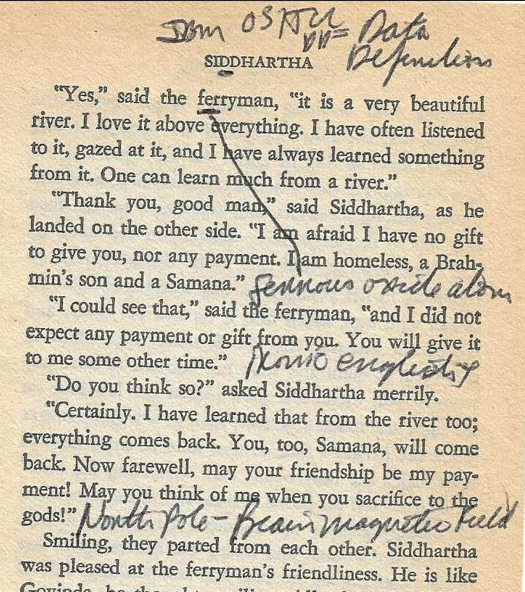 IBM OS JCL
DD = Data
Definition
SIDDHARTHA
"Yes," said the ferryman, "it is a very beautiful
river. I love it above everything. I have often listened
to it, gazed at it, and I have always learned something
from it. One can learn much from a river."
"Thank you, good man," said Siddhartha, as he
landed on the other side. "I am afraid I have no gift
to give you, nor any payment. I am homeless, a Brah-
min's son and a Samana."
oxide
"I could see that," said the ferryman, "and I did not
expect any payment or gift from you. You will give it
to me some other time."
"Do you think so?" asked Siddhartha merrily.
"Certainly. I have learned that from the river too;
everything comes back. You, too, Samana, will come
back. Now farewell, may your friendship be my pay-
ment! May you think of me when you sacrifice to the
gods!" North Pole - Brain magnetic Field
Smiling, they parted from each other. Siddhartha
was pleased at the ferryman's friendliness. He is like